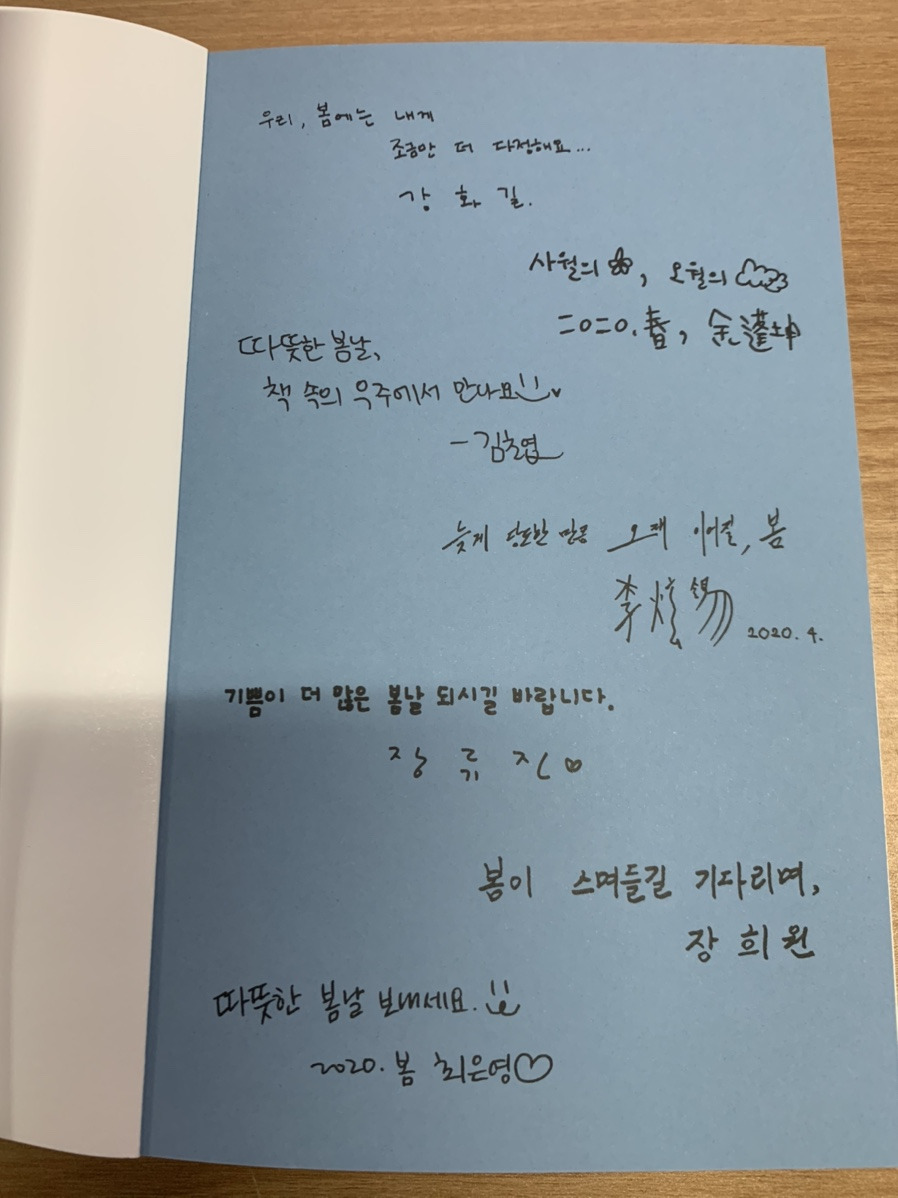 우리, 봄에는 내게
조금만 더 다정해요...
강화길.
사월의 , 오월의
二0二0.春, 金蓬坤
따뜻한 봄날,
책 속의 우주에서 만나요
-김초엽
늦게 당도한 만큼 오래 이어질, 봄
李炫錫 2020.4.
기쁨이 더 많은 봄날 되시길 바랍니다.
장류진
봄이 스며들길 기다리며,
장희원
따뜻한 봄날 보내세요.
2020. 봄 최은영